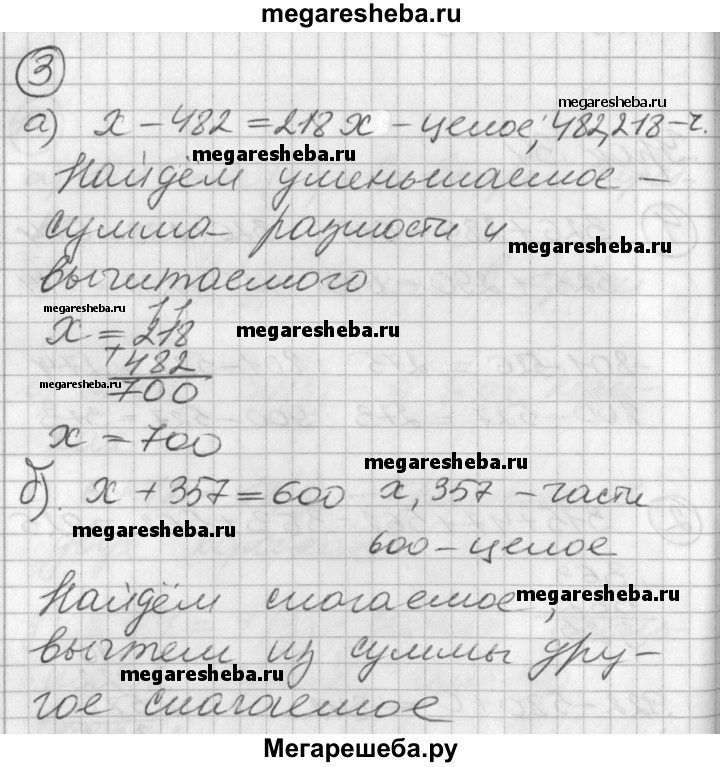 megaresheba.ru
3
megaresheba.ru
а) x – 482 = 218 x – целое, 482, 218 – ч.
megaresheba.ru
Найдём уменьшаемое –
сумма разности и
megaresheba.ru
вычитаемого
megaresheba.ru
11
x = 218
megaresheba.ru
+ 482
megaresheba.ru
700
x = 700
megaresheba.ru
б). x + 357 = 600 x, 357 – части
megaresheba.ru
600 – целое
Найдём слагаемое,
megaresheba.ru
вычтем из суммы дру-
megaresheba.ru
гое слагаемое
Мегарешеба.ру